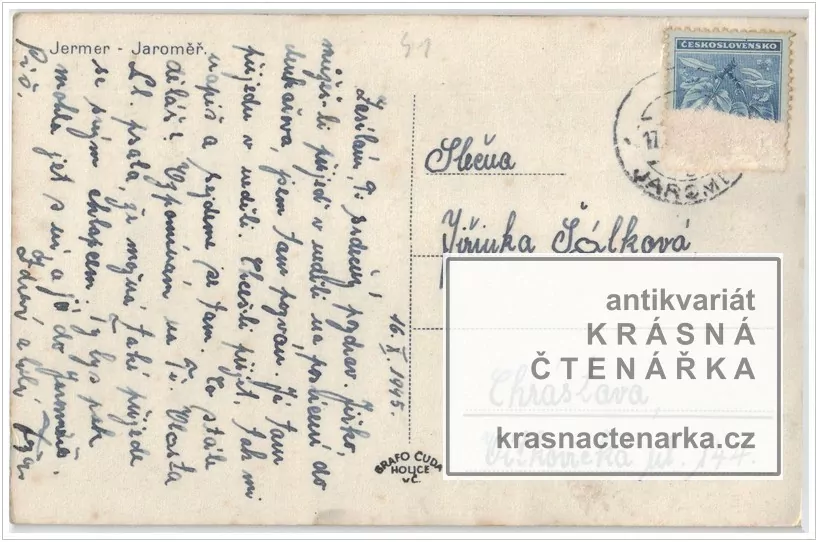 Jermer - Jaroměř.
16. X. 1945.
Zasílám Ti srdečný pozdrav. Jiško,
můžeš-li přijeď v neděli na posvícení do
jsem tam zván. Já tam
přijedu v neděli. Chceš-li přijet, tak mi
napiš a sejdeme se tam. Co stále
děláš? Vzpomínám na Tě. Vlasta
L. psala, že možná také přijede
se svým chlapcem. Ty bys pak
mohla jet s ní a já do Jaroměře.
Piš.
Zdraví a líbí
ČESKOSLOVENSKO
17
JAROMĚ
Slečna
Jiřinka Šálková
Chrastava,
144.
BRAFO ČUDA
HOLICE
VČ.
41
antikvariát
KRÁSNÁ
ČTENÁŘKA
krasnactenarka.cz